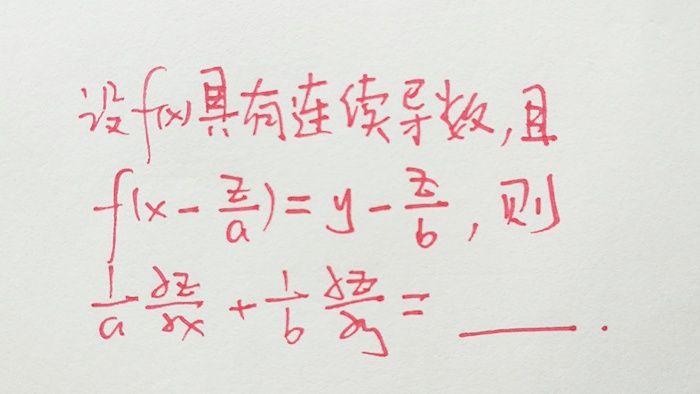 设f(x)具有连续导数,且
f(x - z/a) = y - z/b, 则
1/a ∂z/∂x + 1/b ∂z/∂y = ______.